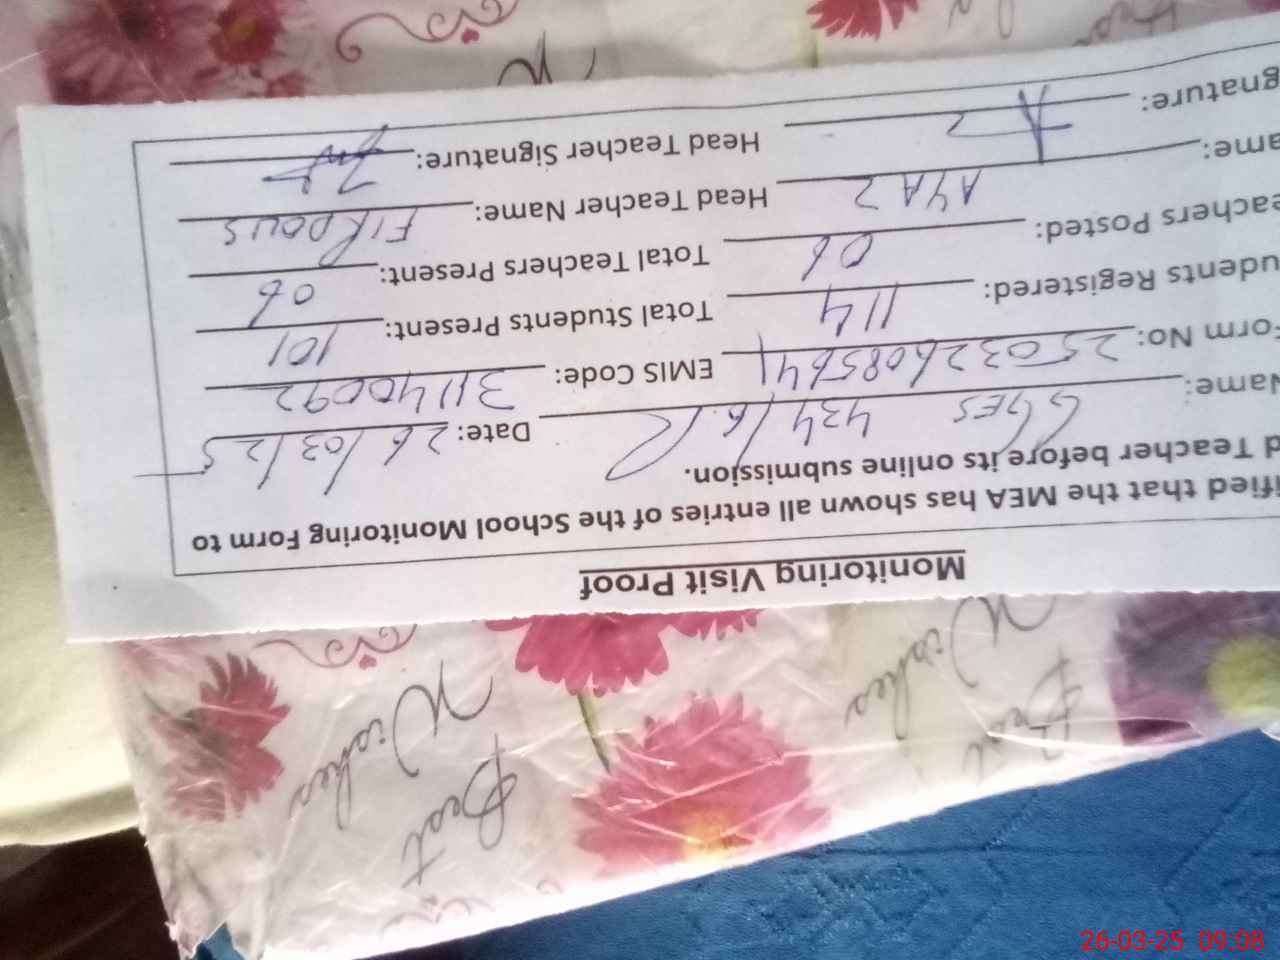 Monitoring Visit Proof
ified that the MEA has shown all entries of the School Monitoring Form to
d Teacher before its online submission.
Name: GGES 434/6.R Date: 26/03/25
Form No: 25032608564 EMIS Code: 31140092
udents Registered: 114 Total Students Present: 101
eachers Posted: 06 Total Teachers Present: 06
ame: AYAZ Head Teacher Name: FIRDOUS
gnature: Head Teacher Signature:
Best Wishes
Best Wishes
26-03-25 09:08